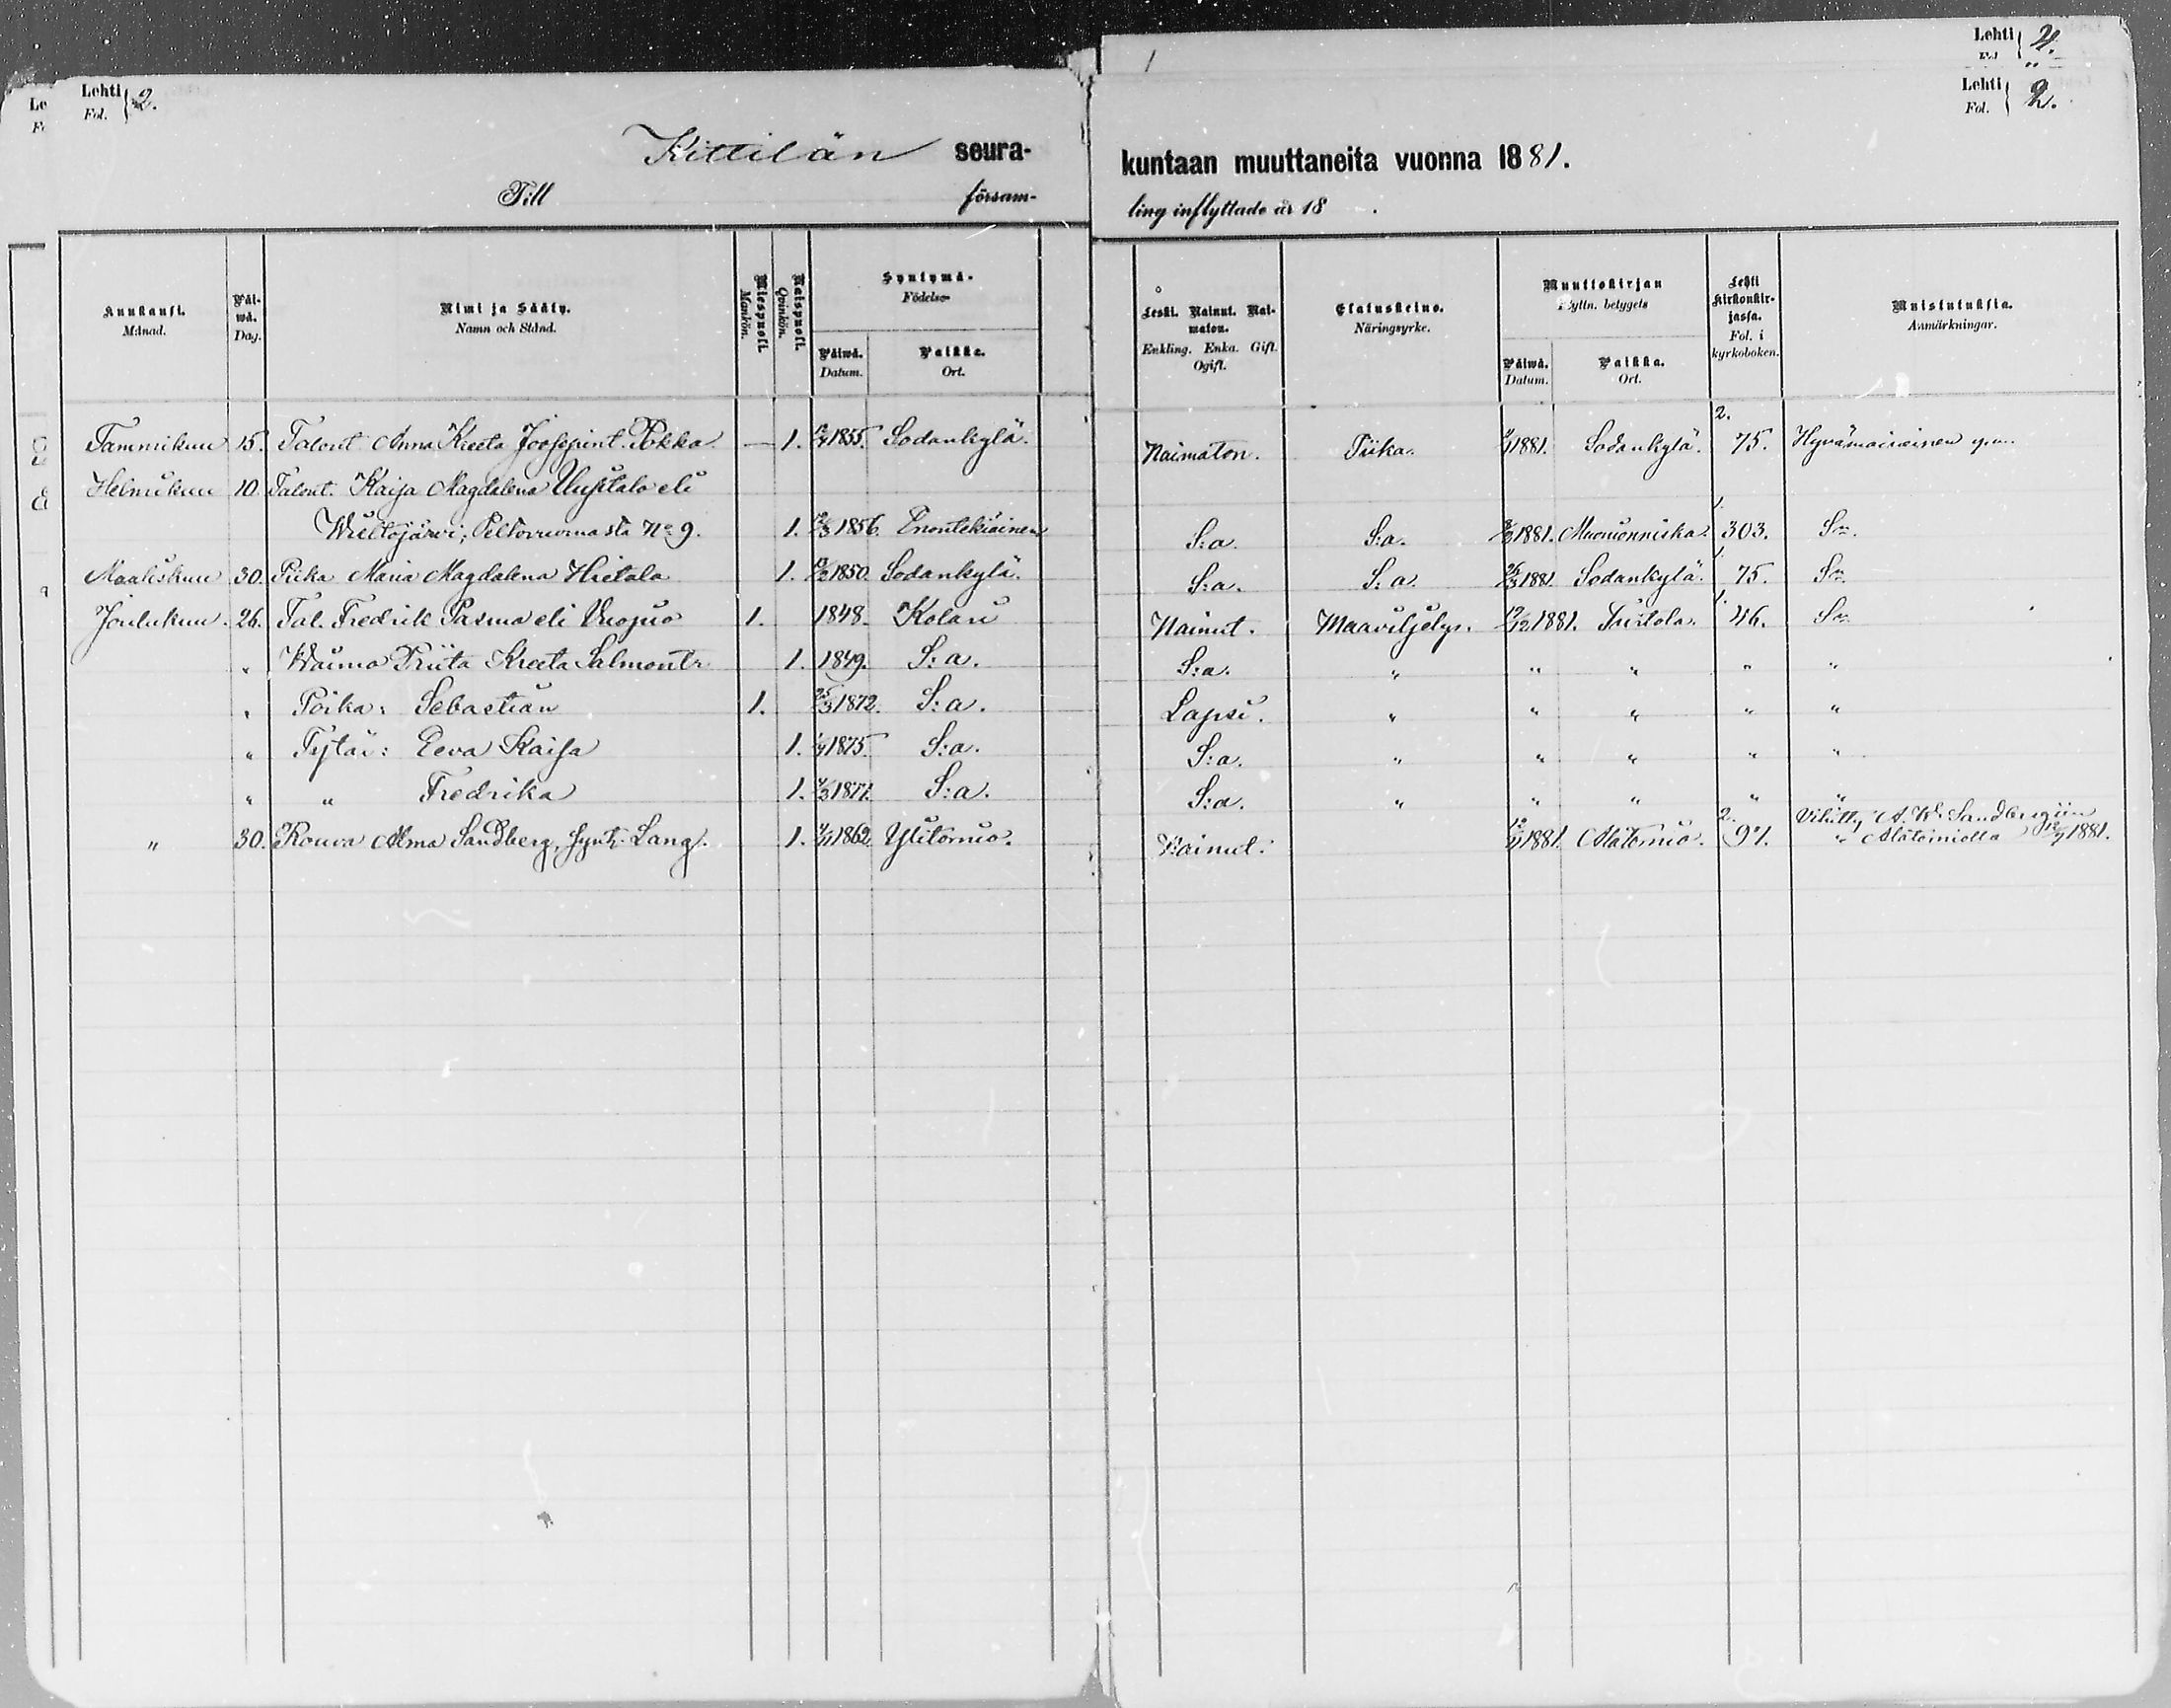 Lehti Fol. 2.
Lehti 2.
Lehti Fol. 2.
Kittilän seura-kuntaan muuttaneita vuonna 1881.
Till församling inflyttade år 18 .
Kuukausi. Månad.
Päiwä. Dag.
Nimi ja Sääty. Namn och Stånd.
Miespuoli. Mankön.
Naispuoli. Qvinkön.
Syntymä- Födelse-
Päiwä. Datum.
Paikka. Ort.
Leski. Nainut. Naimaton. Enkling. Enka. Gift. Ogift.
Elatuskeino. Näringsyrke.
Muuttokirjan Flyttn. betygets
Päiwä. Datum.
Paikka. Ort.
Lehti kirkonkirjassa. Fol. i kyrkoboken.
Muistutuksia. Anmärkningar.
Tammikuu 15. Talont. Anna Kreeta Joosepint. Pokka — 1. 1855. Sodankylä. Naimaton. Piika. 1881. Sodankylä. 2. 75. Hyvämaineinen y.m.
Helmikuu 10. Talont. Kaisa Magdalena Uusitalo eli
Wieltojärvi, Peltovuomasta No 9. 1. 1856. Enontekiäinen S:a. S:a. 1881. Muonionniska. 1. 303. Sn.
Maaliskuu 30. Piika Maria Magdalena Hietala 1. 1850. Sodankylä. S:a. S:a. 1881. Sodankylä. 1. 75. Sn.
Joulukuu. 26. Tal. Fredrik Pasma eli Vuopio 1. 1848. Kolari Nainut. Maaviljelys. 1881. Turtola. 1. 46. Sn.
" Waimo Priita Kreeta Salmontr 1. 1849. S:a. S:a. " " " " "
" Poika: Sebastian 1. 1872. S:a. Lapsi. " " " " "
" Tytär: Eeva Kaisa 1. 1875. S:a. S:a. " " " " "
" " Fredrika 1. 1877. S:a. S:a. " " " " "
" 30. Rouva Alma Sandberg, synt. Lang. 1. 1862. Ylitornio. Nainut. 1881. Alatornio. 2. 97. Vihitty A. W. Sandbergiin
" Alatorniolla 1881.